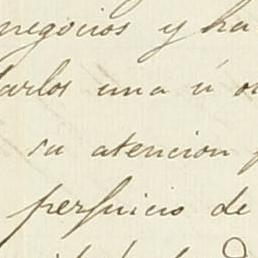 negocios y ha
darlos una ú o
su atencion
perjuicio de